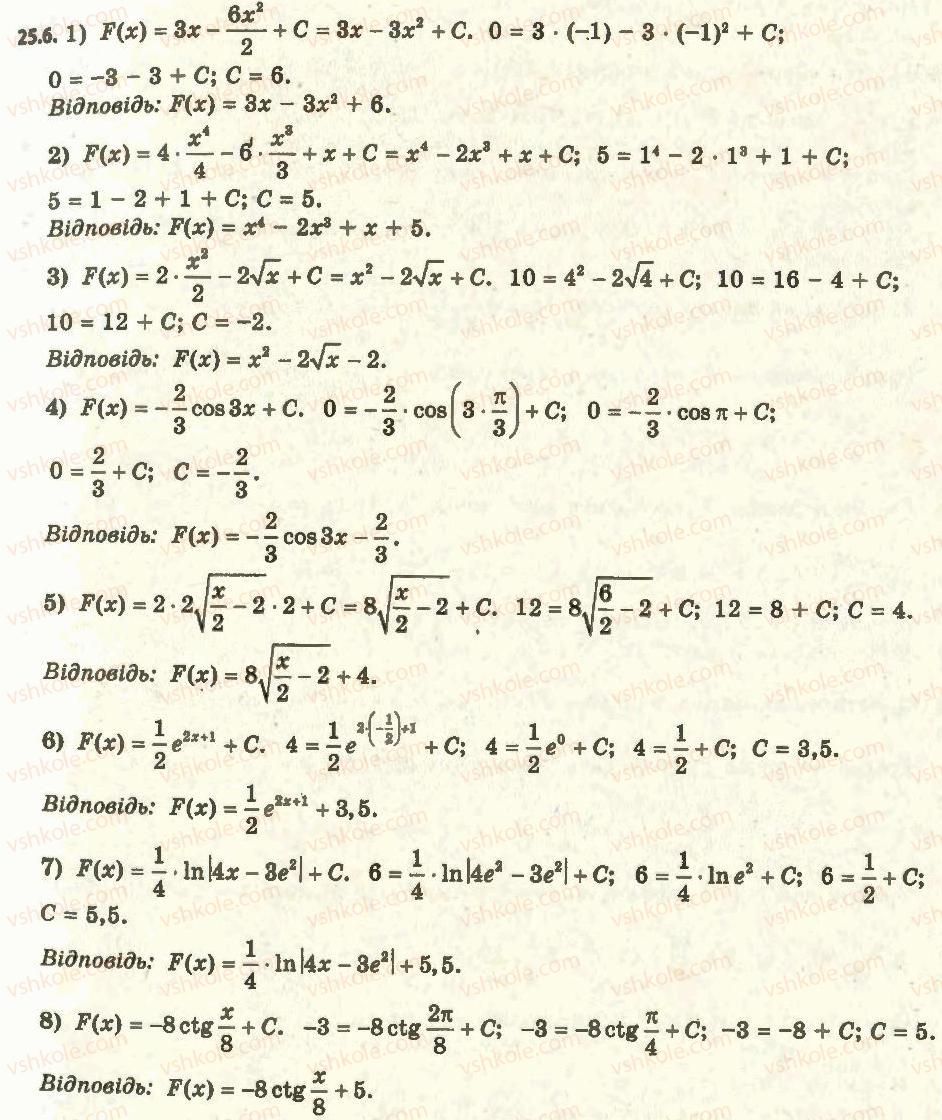 25.6. 1) F(x) = 3x − 6x²/2 + C = 3x − 3x² + C. 0 = 3 · (−1) − 3 · (−1)² + C;
0 = −3 − 3 + C; C = 6.
Відповідь: F(x) = 3x − 3x² + 6.
2) F(x) = 4 · x⁴/4 − 6 · x³/3 + x + C = x⁴ − 2x³ + x + C; 5 = 1⁴ − 2 · 1³ + 1 + C;
5 = 1 − 2 + 1 + C; C = 5.
Відповідь: F(x) = x⁴ − 2x³ + x + 5.
3) F(x) = 2 · x²/2 − 2√x + C = x² − 2√x + C. 10 = 4² − 2√4 + C; 10 = 16 − 4 + C;
10 = 12 + C; C = −2.
Відповідь: F(x) = x² − 2√x − 2.
4) F(x) = −2/3 cos 3x + C. 0 = −2/3 · cos(3 · π/3) + C; 0 = −2/3 · cos π + C;
0 = 2/3 + C; C = −2/3.
Відповідь: F(x) = −2/3 cos 3x − 2/3.
5) F(x) = 2 · 2√(x/2 − 2) · 2 + C = 8√(x/2 − 2) + C. 12 = 8√(6/2 − 2) + C; 12 = 8 + C; C = 4.
Відповідь: F(x) = 8√(x/2 − 2) + 4.
6) F(x) = 1/2 e^(2x+1) + C. 4 = 1/2 e^(2·(−1/2)+1) + C; 4 = 1/2 e⁰ + C; 4 = 1/2 + C; C = 3,5.
Відповідь: F(x) = 1/2 e^(2x+1) + 3,5.
7) F(x) = 1/4 · ln|4x − 3e²| + C. 6 = 1/4 · ln|4e² − 3e²| + C; 6 = 1/4 · ln e² + C; 6 = 1/2 + C;
C = 5,5.
Відповідь: F(x) = 1/4 · ln|4x − 3e²| + 5,5.
8) F(x) = −8 ctg x/8 + C. −3 = −8 ctg 2π/8 + C; −3 = −8 ctg π/4 + C; −3 = −8 + C; C = 5.
Відповідь: F(x) = −8 ctg x/8 + 5.